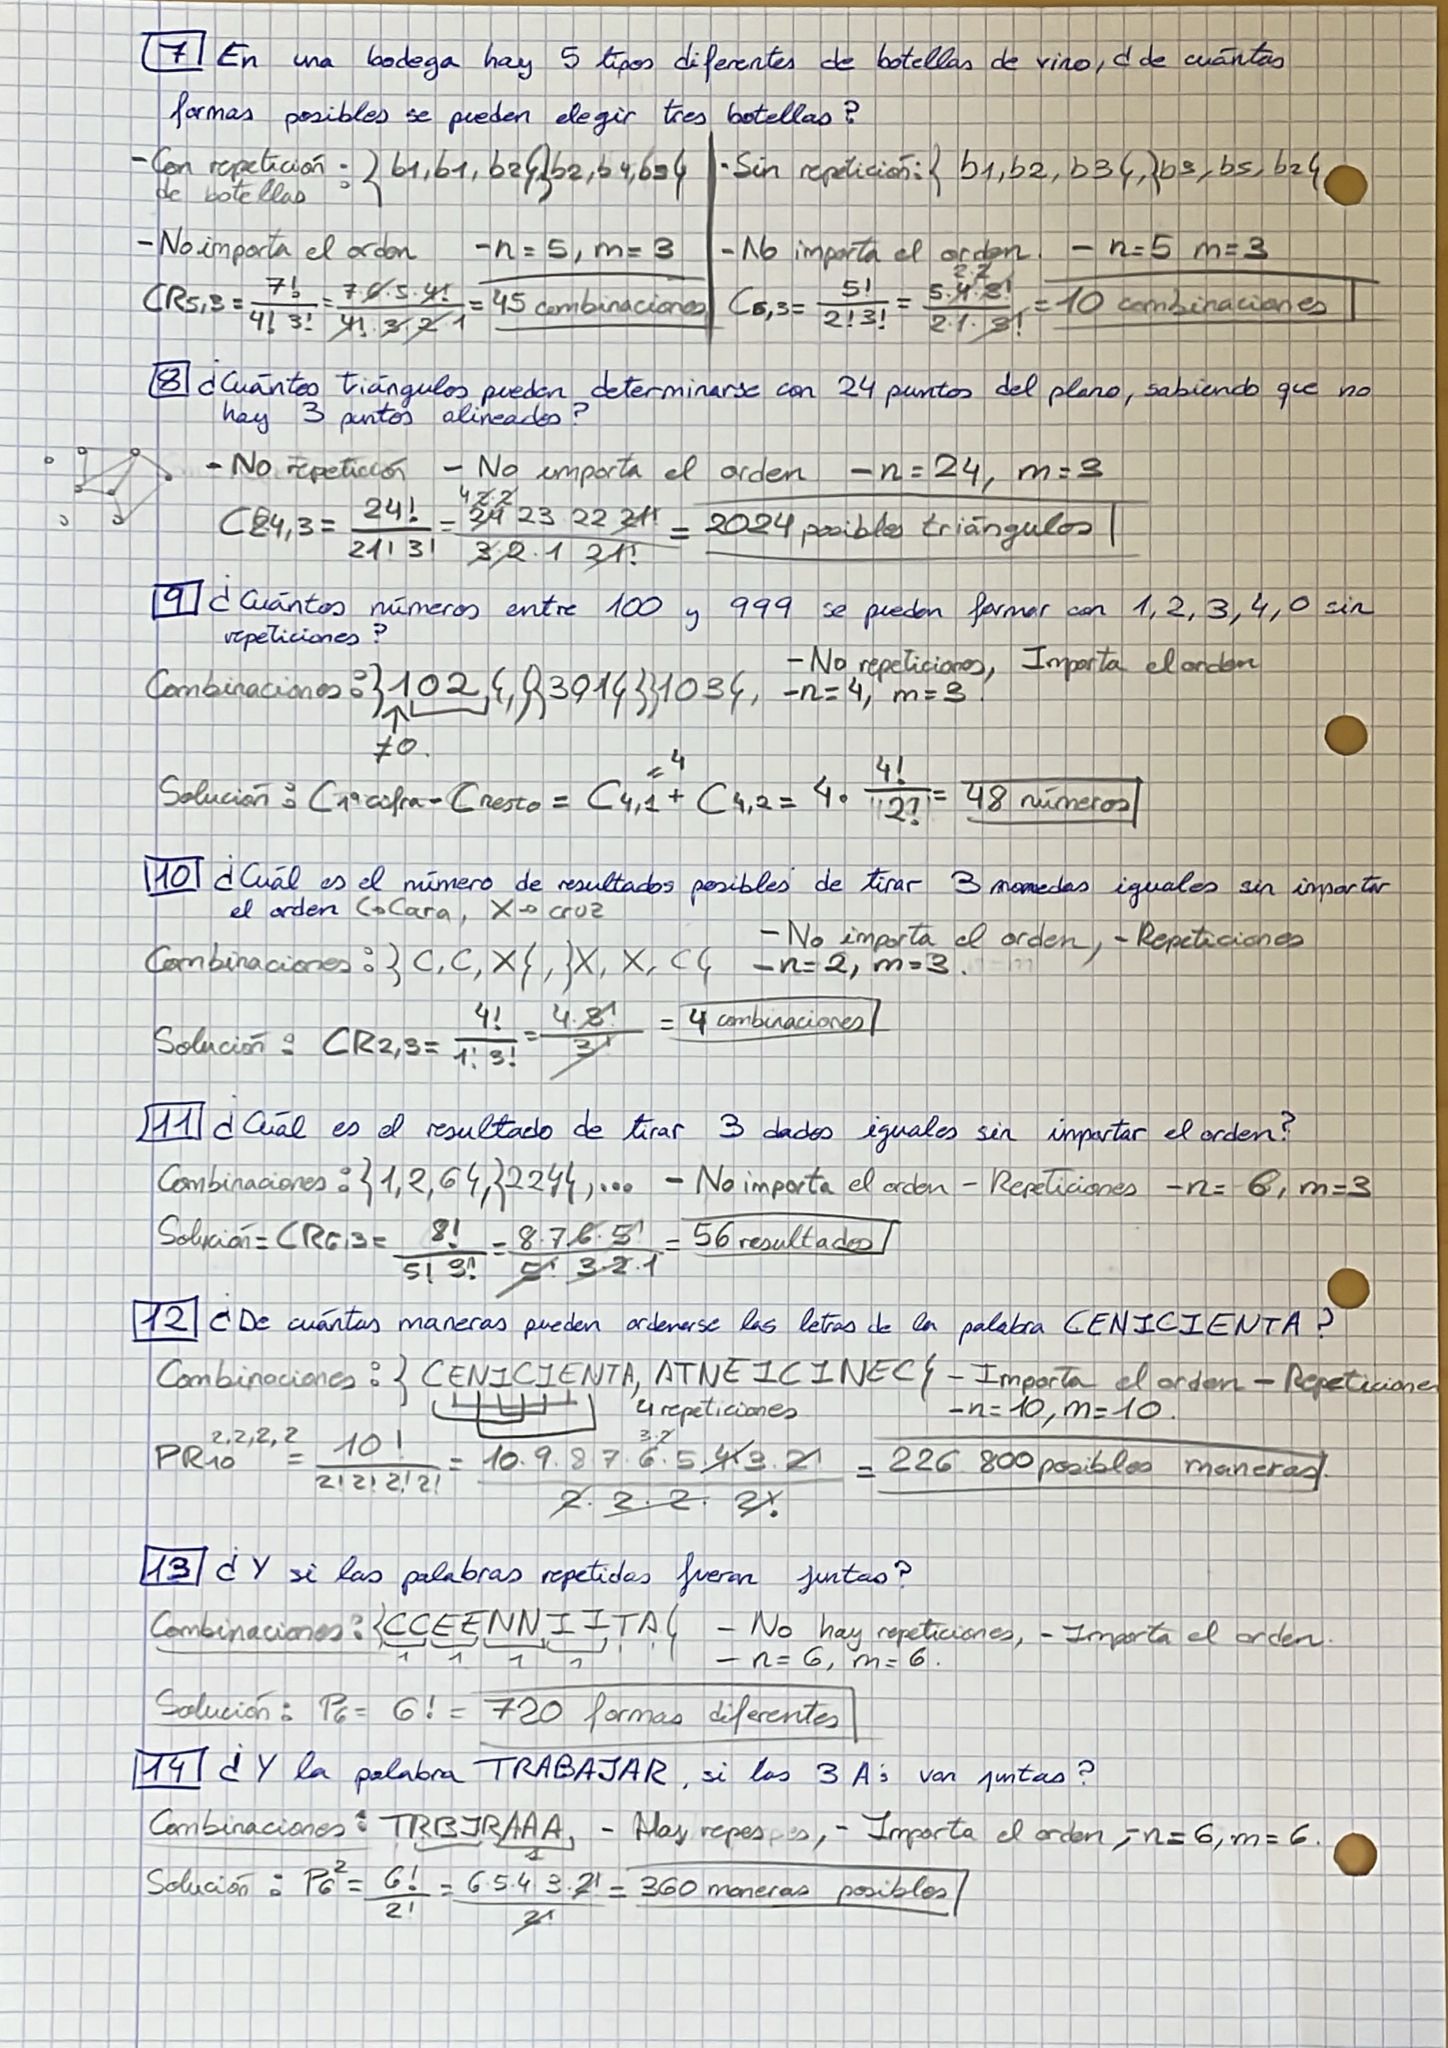 7 En una bodega hay 5 tipos diferentes de botellas de vino, ¿de cuántas
formas posibles se pueden elegir tres botellas?
- Con repetición de botellas : }b1, b1, b2{,}b2, b4, b3{
- No importa el orden - n = 5, m = 3
CR5,3 = 7!/(4! 3!) = (7·6·5·4!)/(4!·3·2·1) = 45 combinaciones
- Sin repetición: { b1, b2, b3{,}b3, b5, b2{
- No importa el orden. - n = 5 m = 3
C5,3 = 5!/(2!3!) = (5·4·3!)/(2·1·3!) = 10 combinaciones
8 ¿Cuántos triángulos pueden determinarse con 24 puntos del plano, sabiendo que no
hay 3 puntos alineados?
- No repetición - No importa el orden - n = 24, m = 3
C24,3 = 24!/(21! 3!) = (24 23 22 21!)/(3·2·1 21!) = 2024 posibles triángulos
9 ¿Cuántos números entre 100 y 999 se pueden formar con 1, 2, 3, 4, 0 sin
repeticiones?
- No repeticiones, Importa el orden
Combinaciones: }102{,}301{}103{, - n = 4, m = 3
≠0.
Solución: C1ª cifra - Cresto = C4,1 + C4,2 = 4· 4!/2! = 48 números
= 4
10 ¿Cuál es el número de resultados posibles de tirar 3 monedas iguales sin importar
el orden C→Cara, X→cruz
- No importa el orden, - Repeticiones
Combinaciones: } C, C, X{, }X, X, C{ - n = 2, m = 3.
Solución: CR2,3 = 4!/(1! 3!) = (4·3!)/3! = 4 combinaciones
11 ¿Cuál es el resultado de tirar 3 dados iguales sin importar el orden?
Combinaciones: }1, 2, 6{,}224{,... - No importa el orden - Repeticiones - n = 6, m = 3
Solución = CR6,3 = 8!/(5! 3!) = (8·7·6·5!)/(5! 3·2·1) = 56 resultados
12 ¿De cuántas maneras pueden ordenerse las letras de la palabra CENICIENTA?
Combinaciones: } CENICIENTA, ATNEICINEC{ - Importa el orden - Repeticiones
4 repeticiones - n = 10, m = 10.
PR10 2,2,2,2 = 10!/(2!2!2!2!) = (10·9·8·7·6·5·4·3·2!)/(2·2·2·2!) = 226 800 posibles maneras
13 ¿Y si las palabras repetidas fueran juntas?
Combinaciones: {CCEENNIITA{ - No hay repeticiones, - Importa el orden.
1 1 1 1 - n = 6, m = 6.
Solución: P6 = 6! = 720 formas diferentes
14 ¿Y la palabra TRABAJAR, si las 3 A's van juntas?
Combinaciones: TRBJRAAA, - Hay repes, - Importa el orden, - n = 6, m = 6.
1
Solución: P6 2 = 6!/2! = (6·5·4·3·2!)/2! = 360 maneras posibles